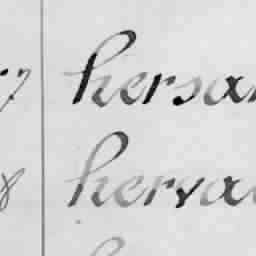 7 hersa
8 herva